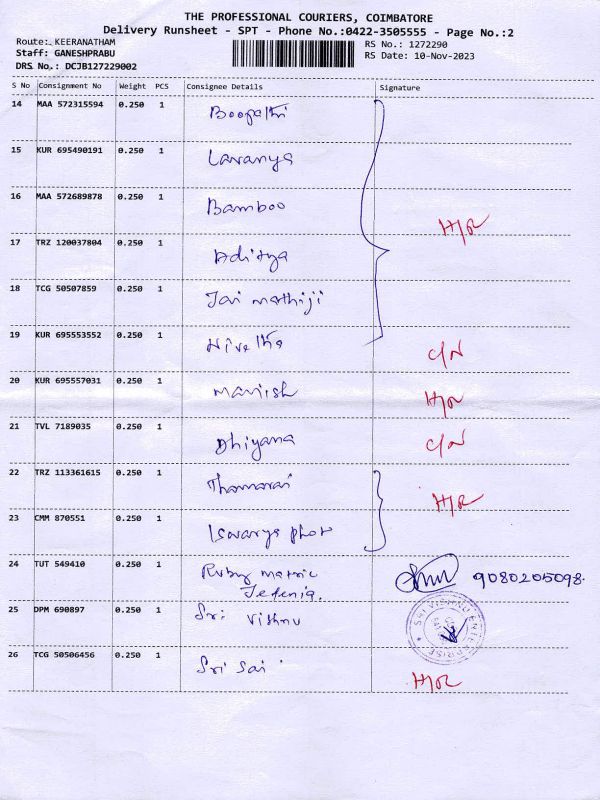 THE PROFESSIONAL COURIERS, COIMBATORE
Delivery Runsheet - SPT - Phone No.:0422-3505555 - Page No.:2
Route: KEERANATHAM
RS No.: 1272290
Staff: GANESHPRABU
RS Date: 10-Nov-2023
DRS No.: DCJB127229002
S No Consignment No Weight PCS Consignee Details Signature
14 MAA 572315594 0.250 1 Boopathi
15 KUR 695490191 0.250 1 Lavanya
16 MAA 572689878 0.250 1 Bamboo H/R
17 TRZ 120037804 0.250 1 Aditya
18 TCG 50507859 0.250 1 Jai mathiji
19 KUR 695553552 0.250 1 Nivetha C/N
20 KUR 695557031 0.250 1 Manish H/R
21 TVL 7189035 0.250 1 Dhiyana C/N
22 TRZ 113361615 0.250 1 Thamarai H/R
23 CMM 870551 0.250 1 Iswarya phot
24 TUT 549410 0.250 1 Ruby matric 9080205098.
25 DPM 690897 0.250 1 Sri Vishnu
SRI VISHNU ENTERPRISE
26 TCG 50506456 0.250 1 Sri Sai H/R